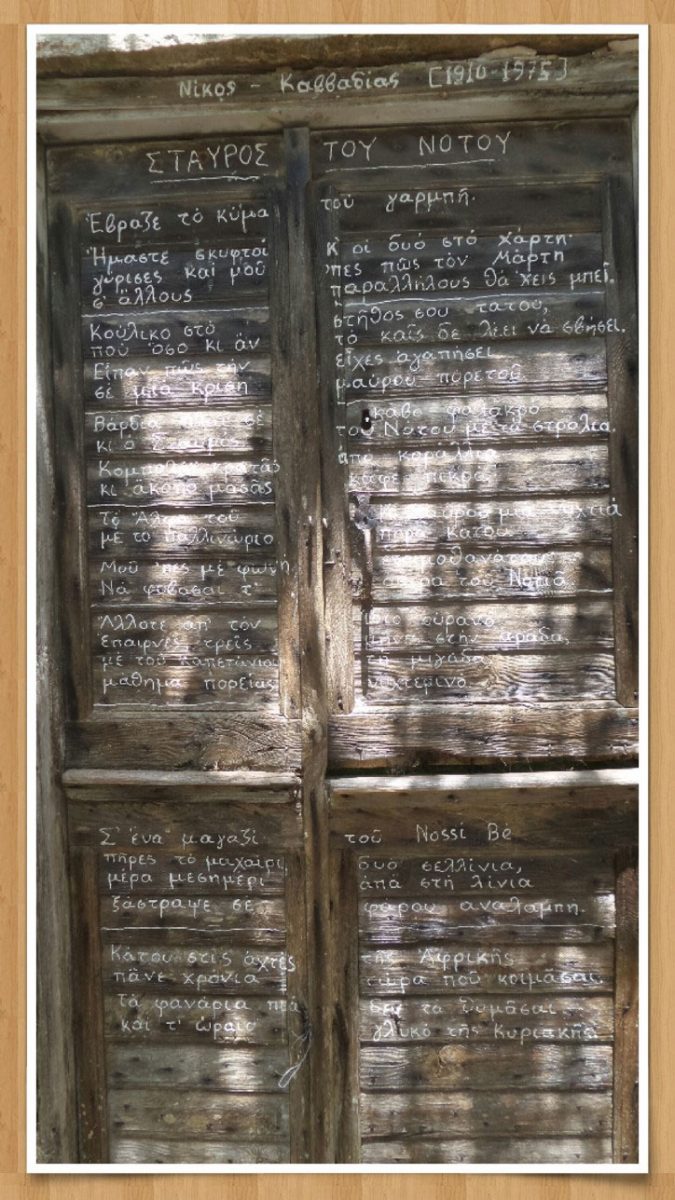 Νίκος - Καββαδίας [1910-1975]
ΣΤΑΥΡΟΣ ΤΟΥ ΝΟΤΟΥ
Έβραζε τὸ κύμα τοῦ γαρμπῆ.
Ἤμαστε σκυφτοί κ' οἱ δυὸ στὸ χάρτη·
γύρισες καί μοῦ 'πες πῶς τὸν Μάρτη
σ' ἄλλους παραλλήλους θά 'χεις μπεῖ.
Κούλικο στὸ στῆθος σου τατού,
πού ὅσο κι ἄν τὸ καῖς δε λέει νὰ σβήσει.
Εἶπαν πῶς τὴν εἶχες ἀγαπήσει
σὲ μιά κρίση μαύρου πυρετοῦ
Βάρδια σὲ κάβο φαλακρό
κι ὁ Σταυρός τοῦ Νότου με τα στράλια.
Κομπολόϊ κρατᾶς ἀπό κοράλλια
κι ἄκοπο μασᾶς καφέ πικρό.
Τὸ Ἄλφα τοῦ μιά νυχτιά
μὲ τὸ παλλινώριο πῆρα κάτου.
Μοῦ 'πες μὲ φωνή
Νά φοβᾶσαι τ' ἄστρα τοῦ Νοτιᾶ.
Ἄλλοτε ἀπ' τὸν ἴδιο οὐρανό
ἔπαιρνες τρεῖς μῆνες στὴν ἀράδα,
μὲ τοῦ καπετάνιου τη μιγάδα,
μάθημα πορείας νυχτερινό.
Σ' ἕνα μαγαζί τοῦ Nossi Be
πῆρες τὸ μαχαίρι δυό σελλίνια,
μέρα μεσημέρι ἀπά στή λίνια
ξάστραψε σὲ φάρου αναλαμπη.
Κάτου στίς ἀχτές τῆς Ἀφρικῆς
πᾶνε χρόνια τώρα πού κοιμᾶσαι.
τὰ φανάρια πιά δὲν τα θυμᾶσαι
καί τ' ὡραῖο γλυκό τῆς Κυριακῆς.